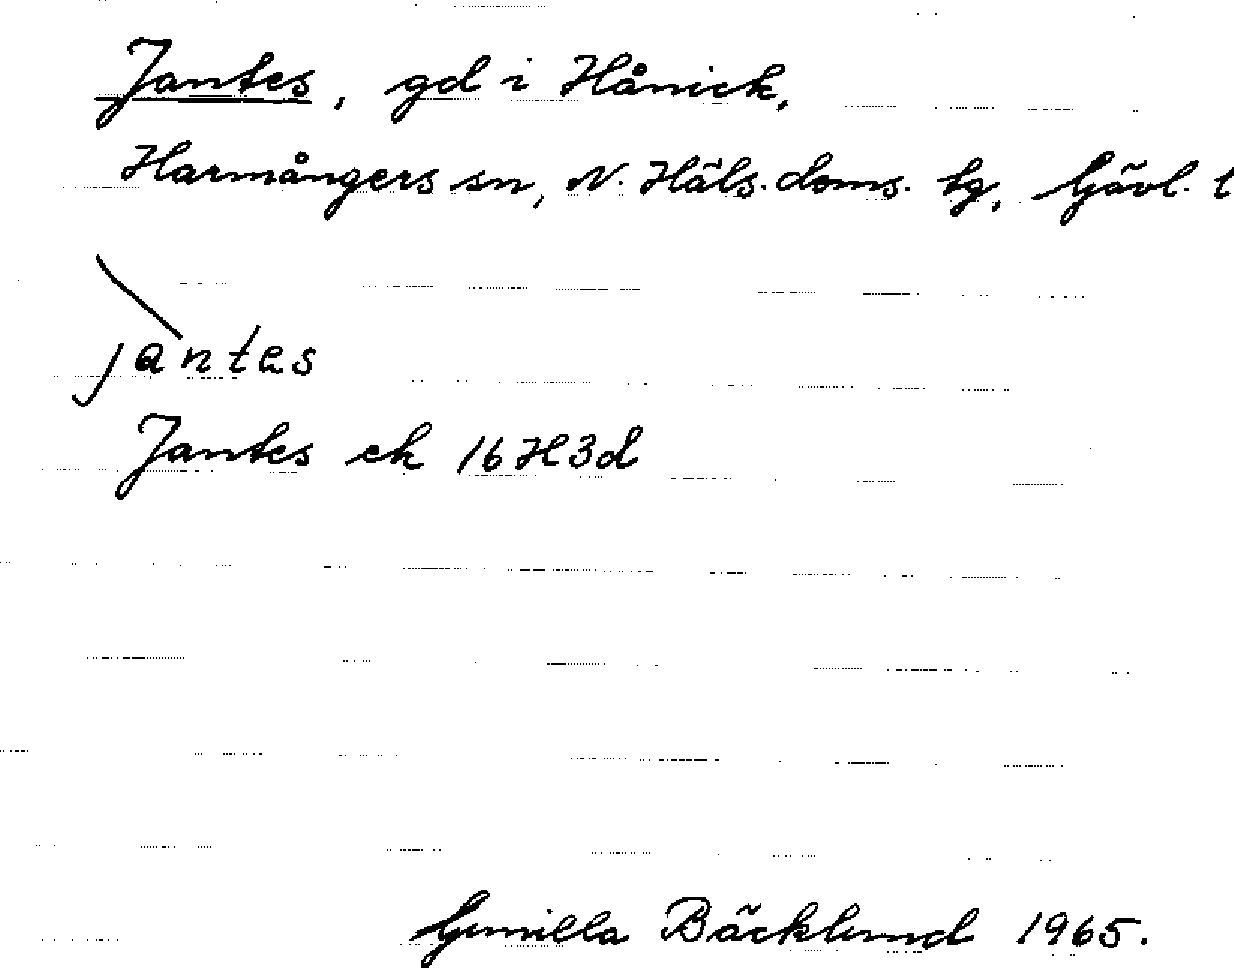 Jantes, gd i Hånick,
Harmångers sn, N. Häls. doms. tg, Gävl. l
jàntes
Jantes ek 16H3d
Gunilla Bäcklund 1965.